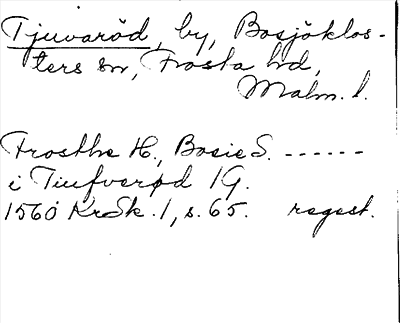 Tjuvaröd, by, Bosjöklos-
ters sn, Frosta hd,
Malm. l.
Frosthe H., Bosie S. ------
i Tiufverød 1 G.
1560 KrSk. 1, s. 65. regest.